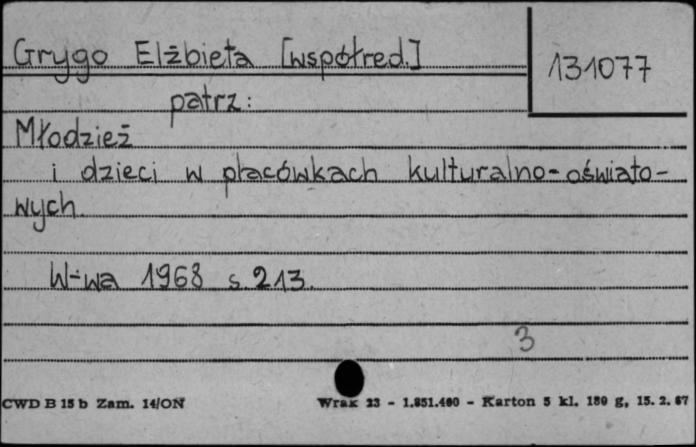 Grygo Elżbieta [współred.]
131077
patrz:
Młodzież
i dzieci w placówkach kulturalno-oświato-
wych.
W-wa 1968 s. 213.
3
CWD B 15 b Zam. 14/ON
Wrak 23 - 1.851.460 - Karton 5 kl. 180 g, 15. 2. 67